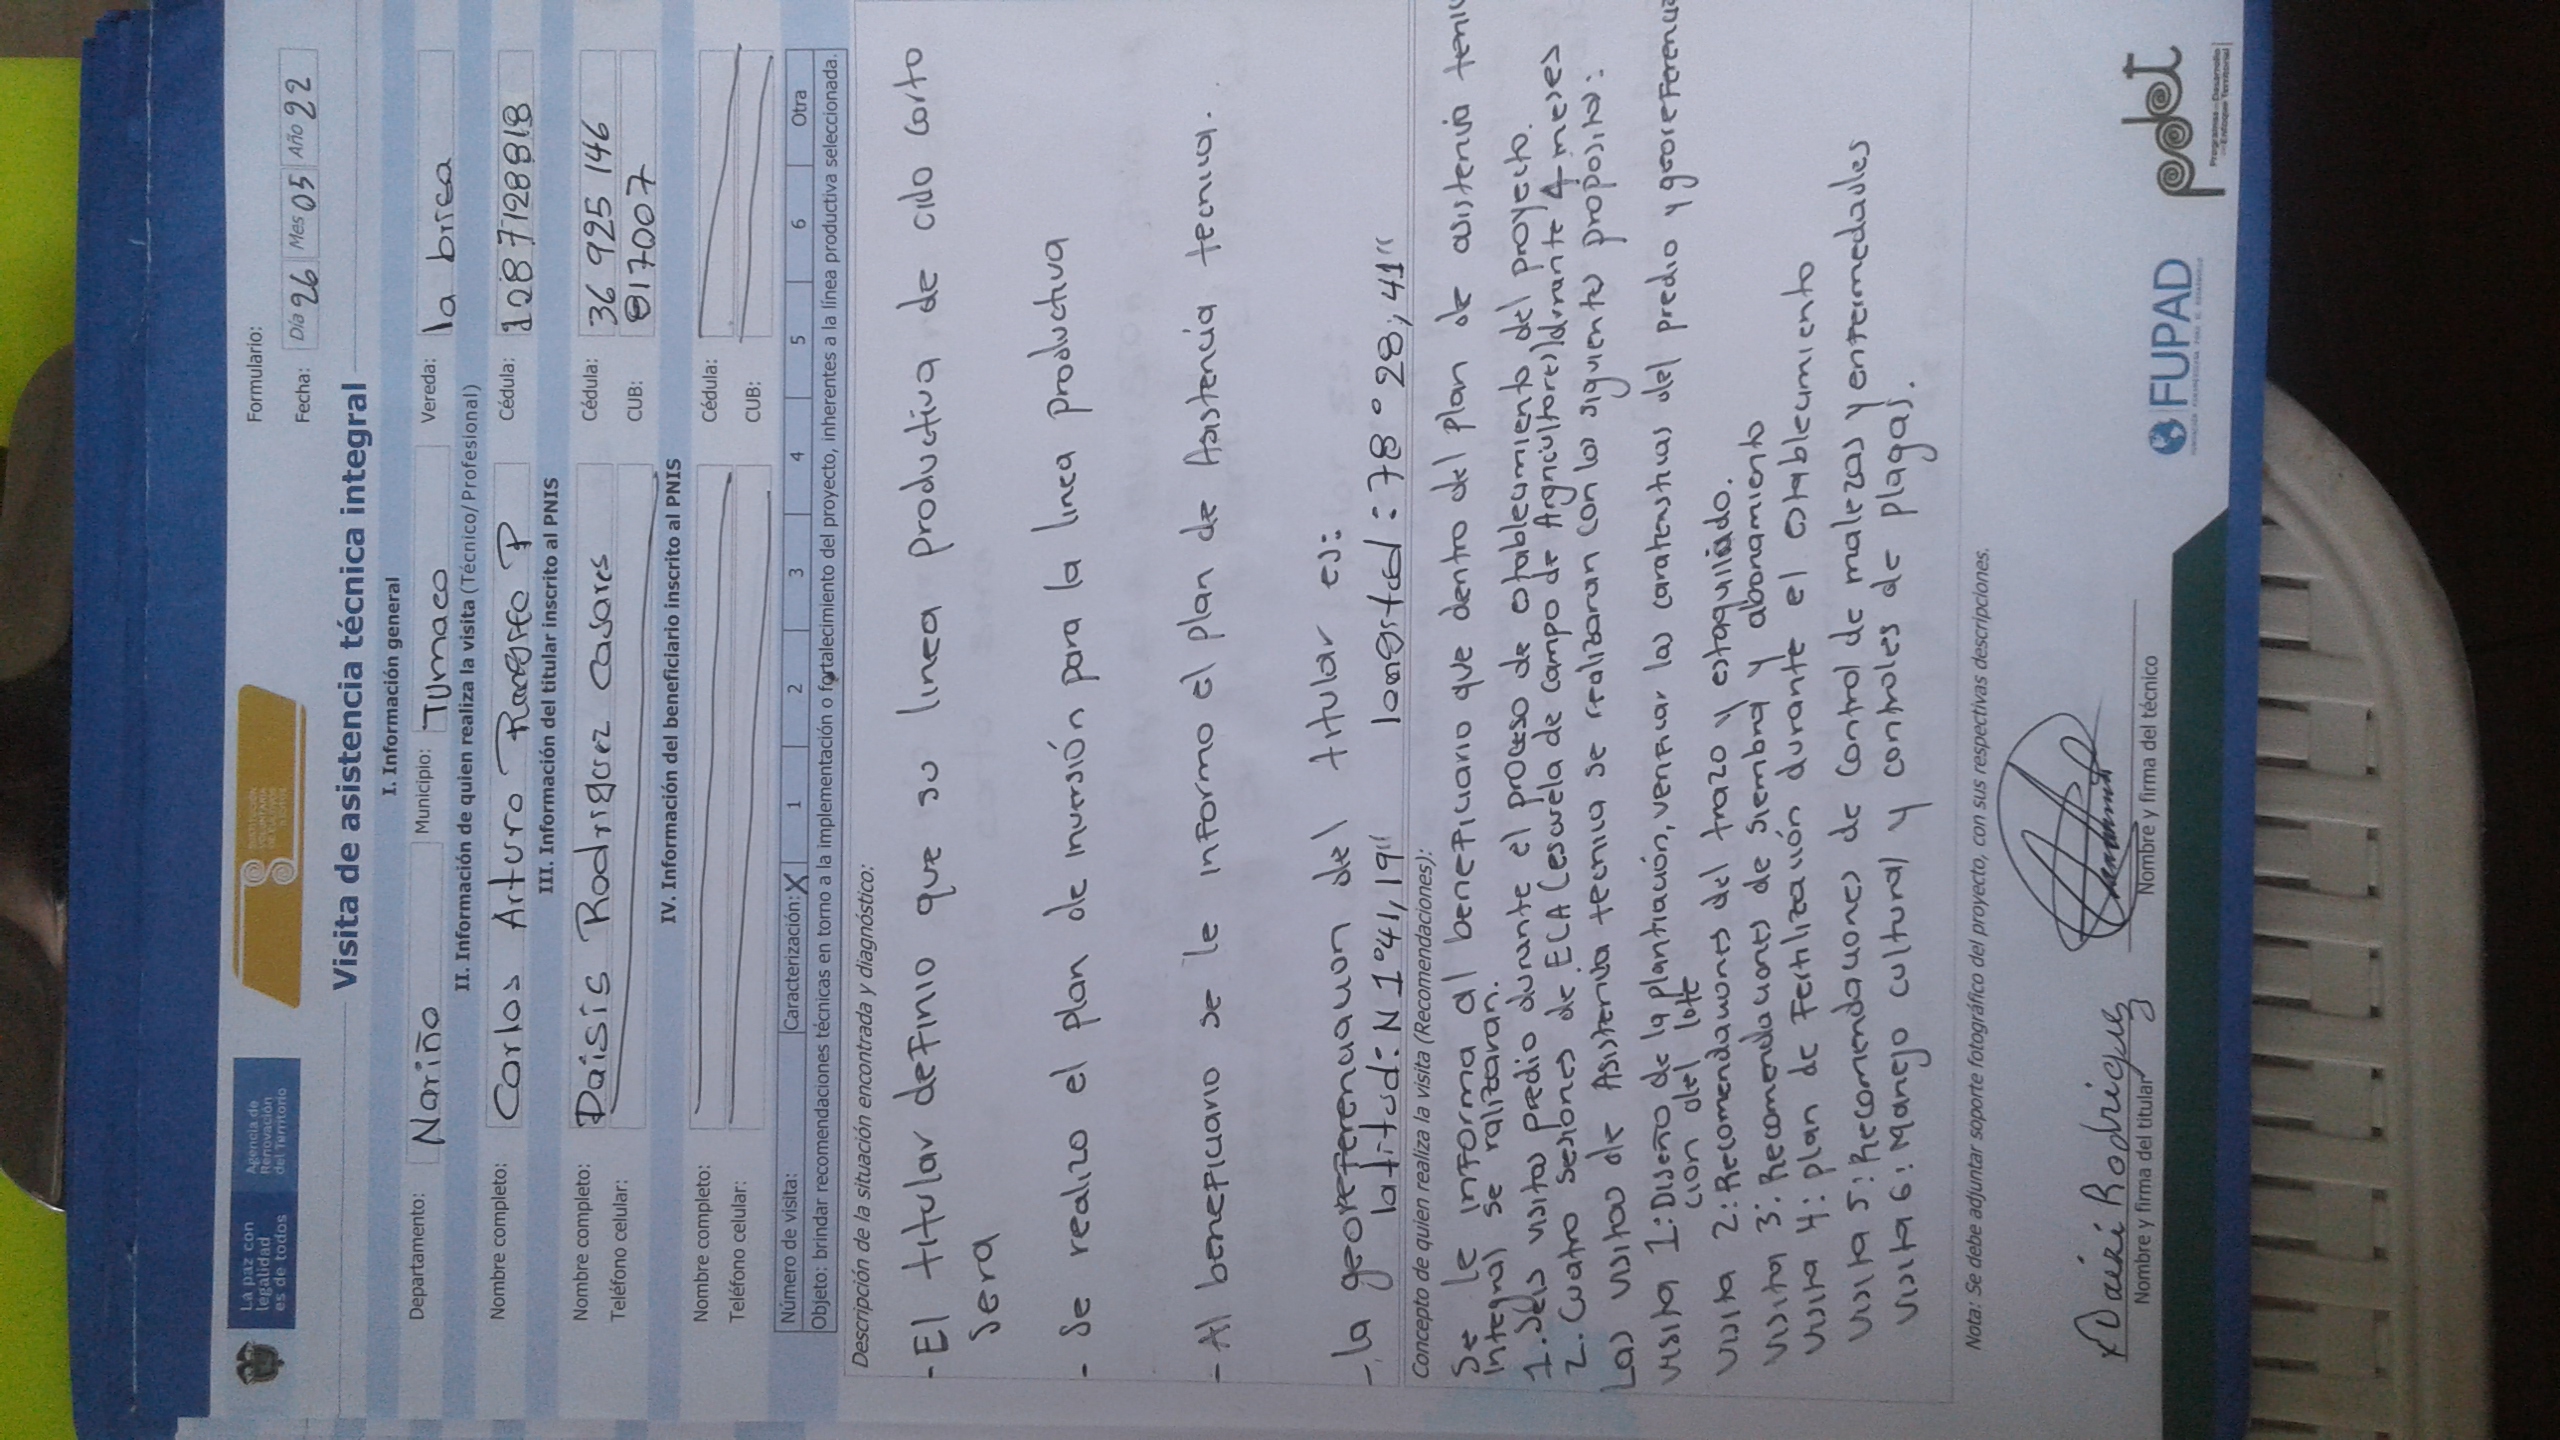 La paz con
legalidad
es de todos
Agencia de
Renovación
del Territorio
SUSTITUCIÓN
VOLUNTARIA
Formulario:
Fecha: Día 26 Mes 05 Año 22
Visita de asistencia técnica integral
I. Información general
Departamento: Nariño Municipio: TUmaco Vereda: la brisa
II. Información de quien realiza la visita (Técnico/Profesional)
Nombre completo: Carlos Arturo P Cédula: 1087128818
III. Información del titular inscrito al PNIS
Nombre completo: Daisis Rodriguez Casares Cédula: 36 925 146
Teléfono celular: CUB: 817007
IV. Información del beneficiario inscrito al PNIS
Nombre completo: Cédula:
Teléfono celular: CUB:
Número de visita: Caracterización: X 1 2 3 4 5 6 Otra
Objeto: brindar recomendaciones técnicas en torno a la implementación o fortalecimiento del proyecto, inherentes a la línea productiva seleccionada.
Descripción de la situación encontrada y diagnóstico:
- El titular definio que su linea productiva de ciclo corto
sera
- Se realizo el plan de inversión para la linea productiva
- Al beneficiario se le informo el plan de Asistencia tecnica.
- la georeferenciacion del titular es:
latitud: N 1°41,19" longitud: 78°28,41"
Concepto de quien realiza la visita (Recomendaciones):
Se le informa al beneficiario que dentro del plan de asistencia tecnic
Integral se ralizaran.
1. Seis visitas predio durante el proceso de establecimiento del proyecto.
2. Cuatro sesiones de ECA (escuela de campo de Agricultores) durante 4 meses
Las visitas de Asistencia tecnica se realizaran con los siguiente proposito:
visita 1: Diseño de la plantiación, verificar las caratenstias del predio y georeferencia
cion del lote
visita 2: Recomendaciones del trazo y estaquillado.
visita 3: Recomendaciones de siembra y abonamiento
visita 4: plan de fertilización durante el establecimiento
visita 5: Recomendaciones de control de malezas y enfermedades
visita 6: Manejo cultural y controles de plagas.
Nota: Se debe adjuntar soporte fotográfico del proyecto, con sus respectivas descripciones.
x Daisi Rodriguez
Nombre y firma del titular Nombre y firma del técnico
FUPAD
pdet
Programas de Desarrollo
con Enfoque Territorial